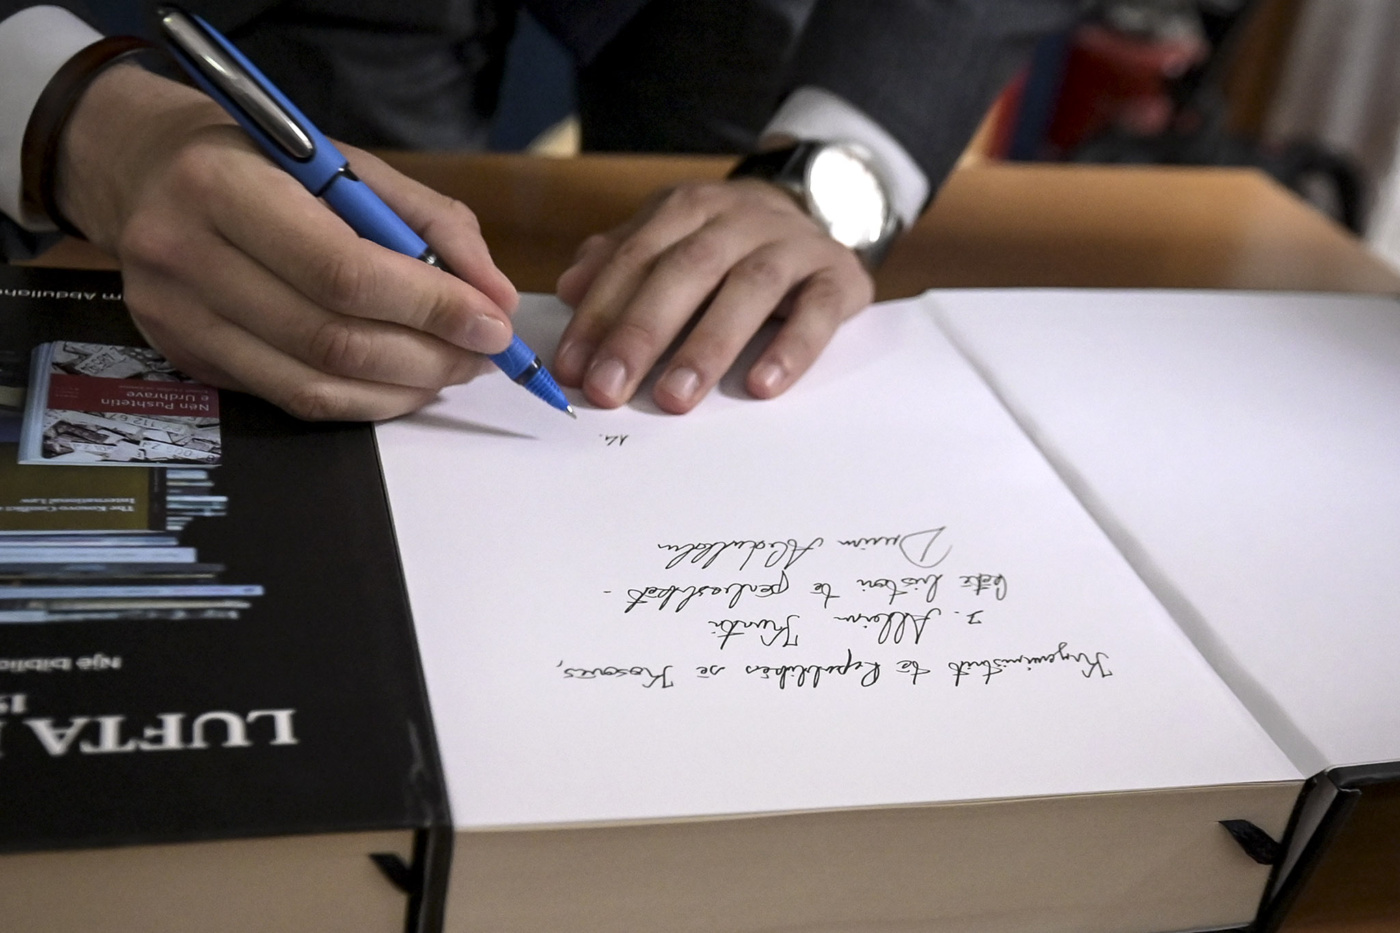 Kryeministrit të Republikës së Kosovës,
z. Albin Kurti
këtë histori të përbashkët -
Durim Abdullahu
14.
LUFTA
Një biblio
The Kosovo Conflict
International Law
Nën Pushtetin
e Urdhrave
m Abdullahu